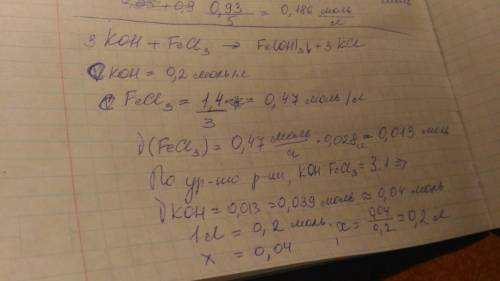 0,93/5 = 0,186 моль/л
3 KOH + FeCl₃ → Fe(OH)₃↓ + 3 KCl
C KOH = 0,2 моль/л
C FeCl₃ = 1,4/3 = 0,47 моль/л
ν(FeCl₃) = 0,47 моль/л · 0,028 л = 0,013 моль
По ур-ию р-ии, KOH FeCl₃ = 3:1 ⇒
ν KOH = 0,013 = 0,039 моль ≈ 0,04 моль
1 л = 0,2 моль. x = 0,04/0,2 = 0,2 л
x = 0,04